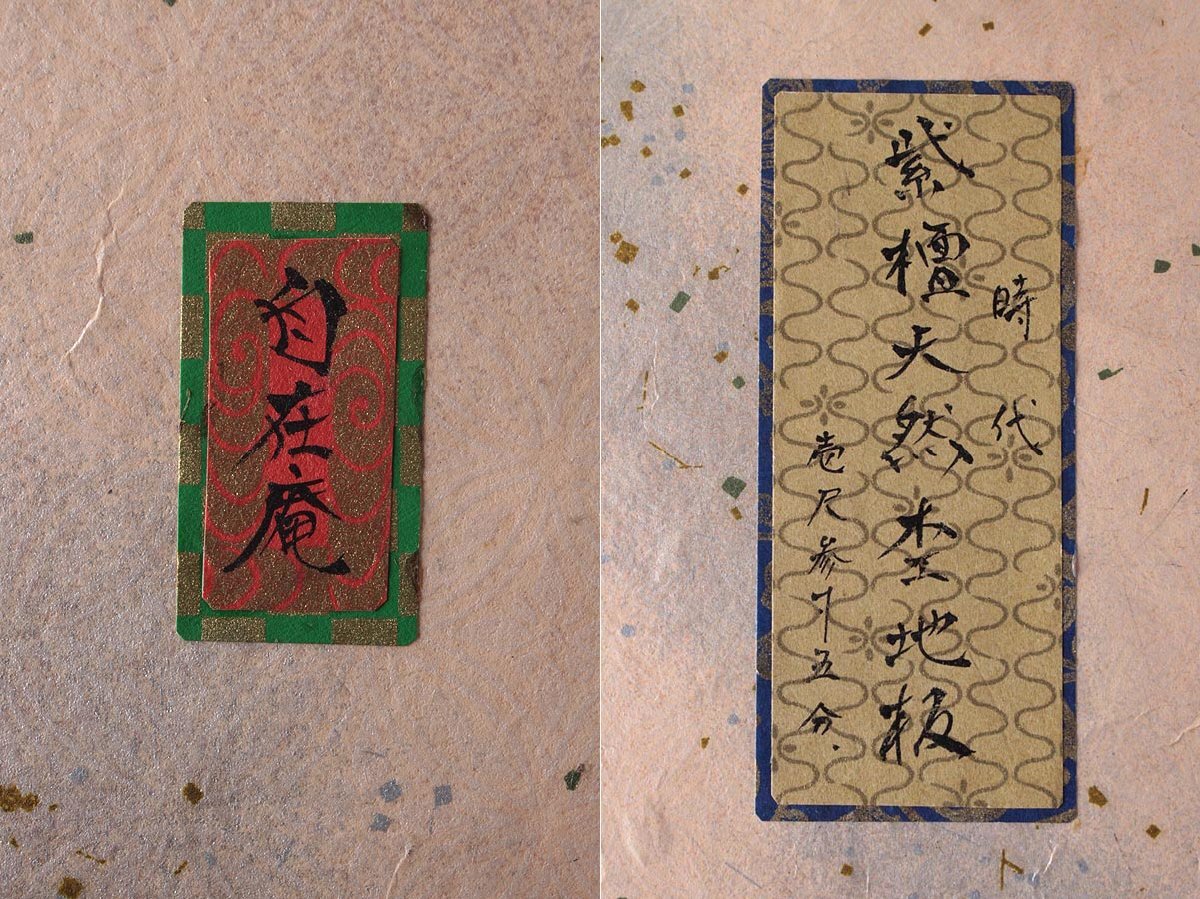 自在庵
時代
紫檀天然杢地板
壱尺参寸五分